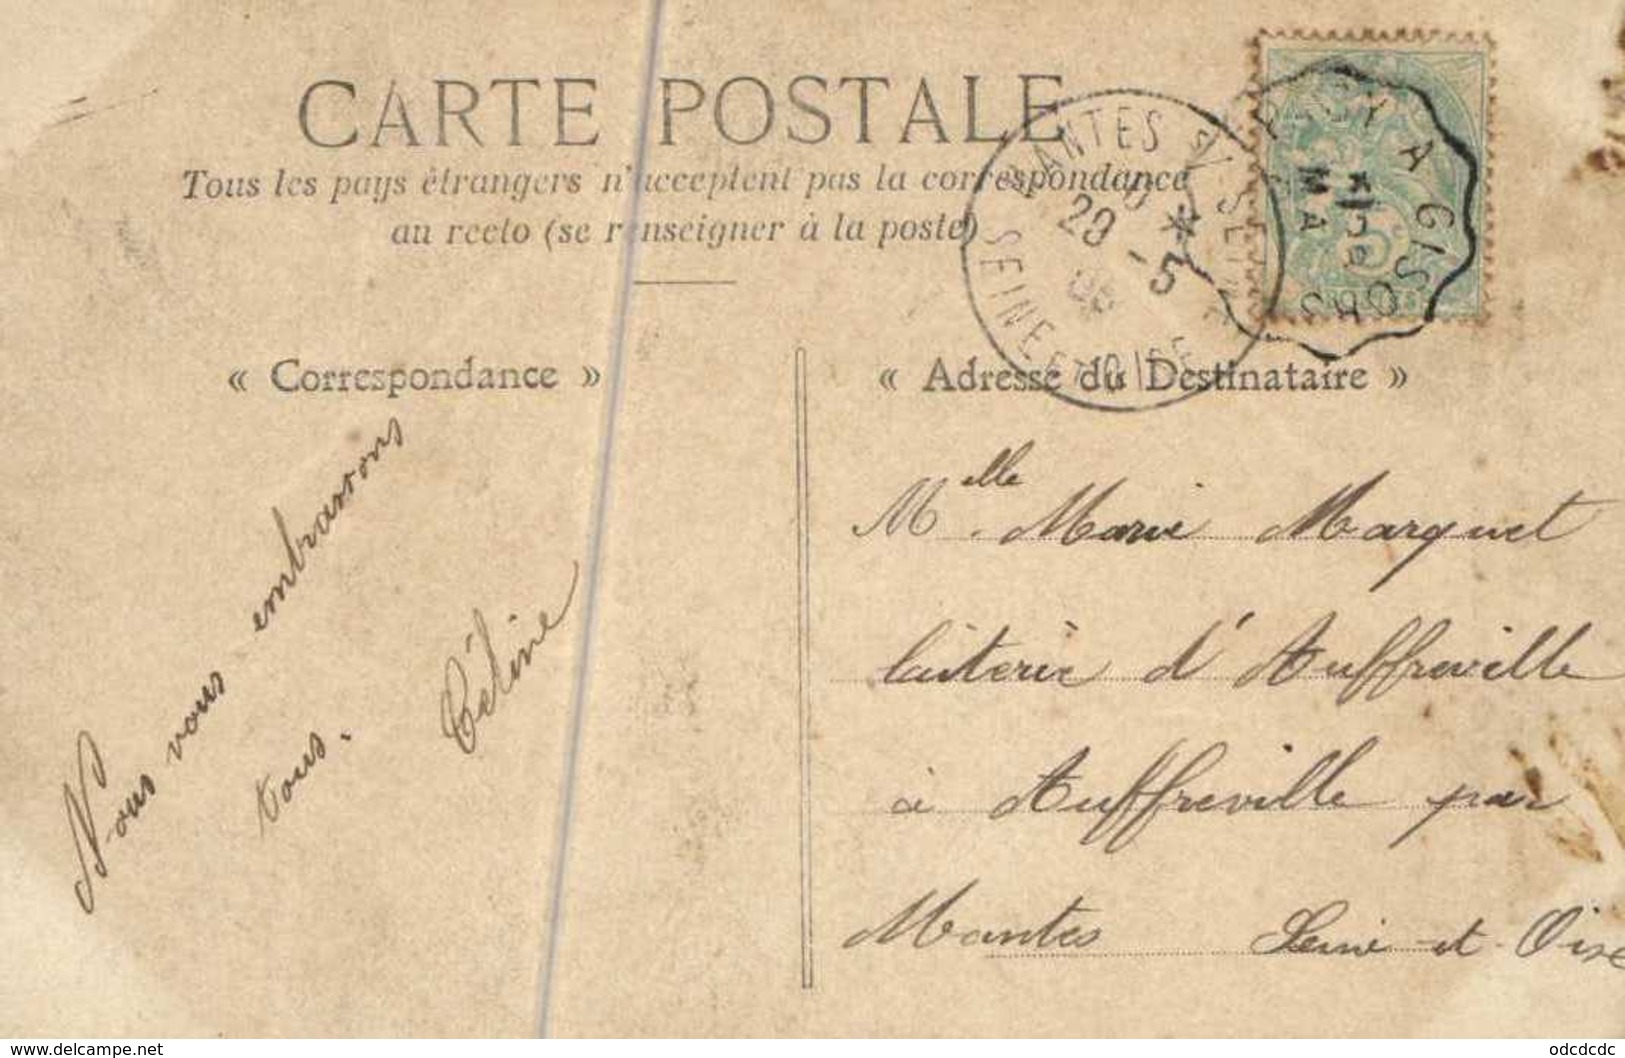 CARTE POSTALE
Tous les pays étrangers n'acceptent pas la correspondance
au recto (se renseigner à la poste)
MANTES S/-SEINE
29 -5
SEINE ET OISE
A GISORS
5c
« Correspondance »
« Adresse du Destinataire »
Nous vous embrassons
tous.
Céline
Melle Marie Marquet
laiterie d'Auffreville
à Auffreville par
Mantes Seine-et-Oise
www.delcampe.net
odcdcdc